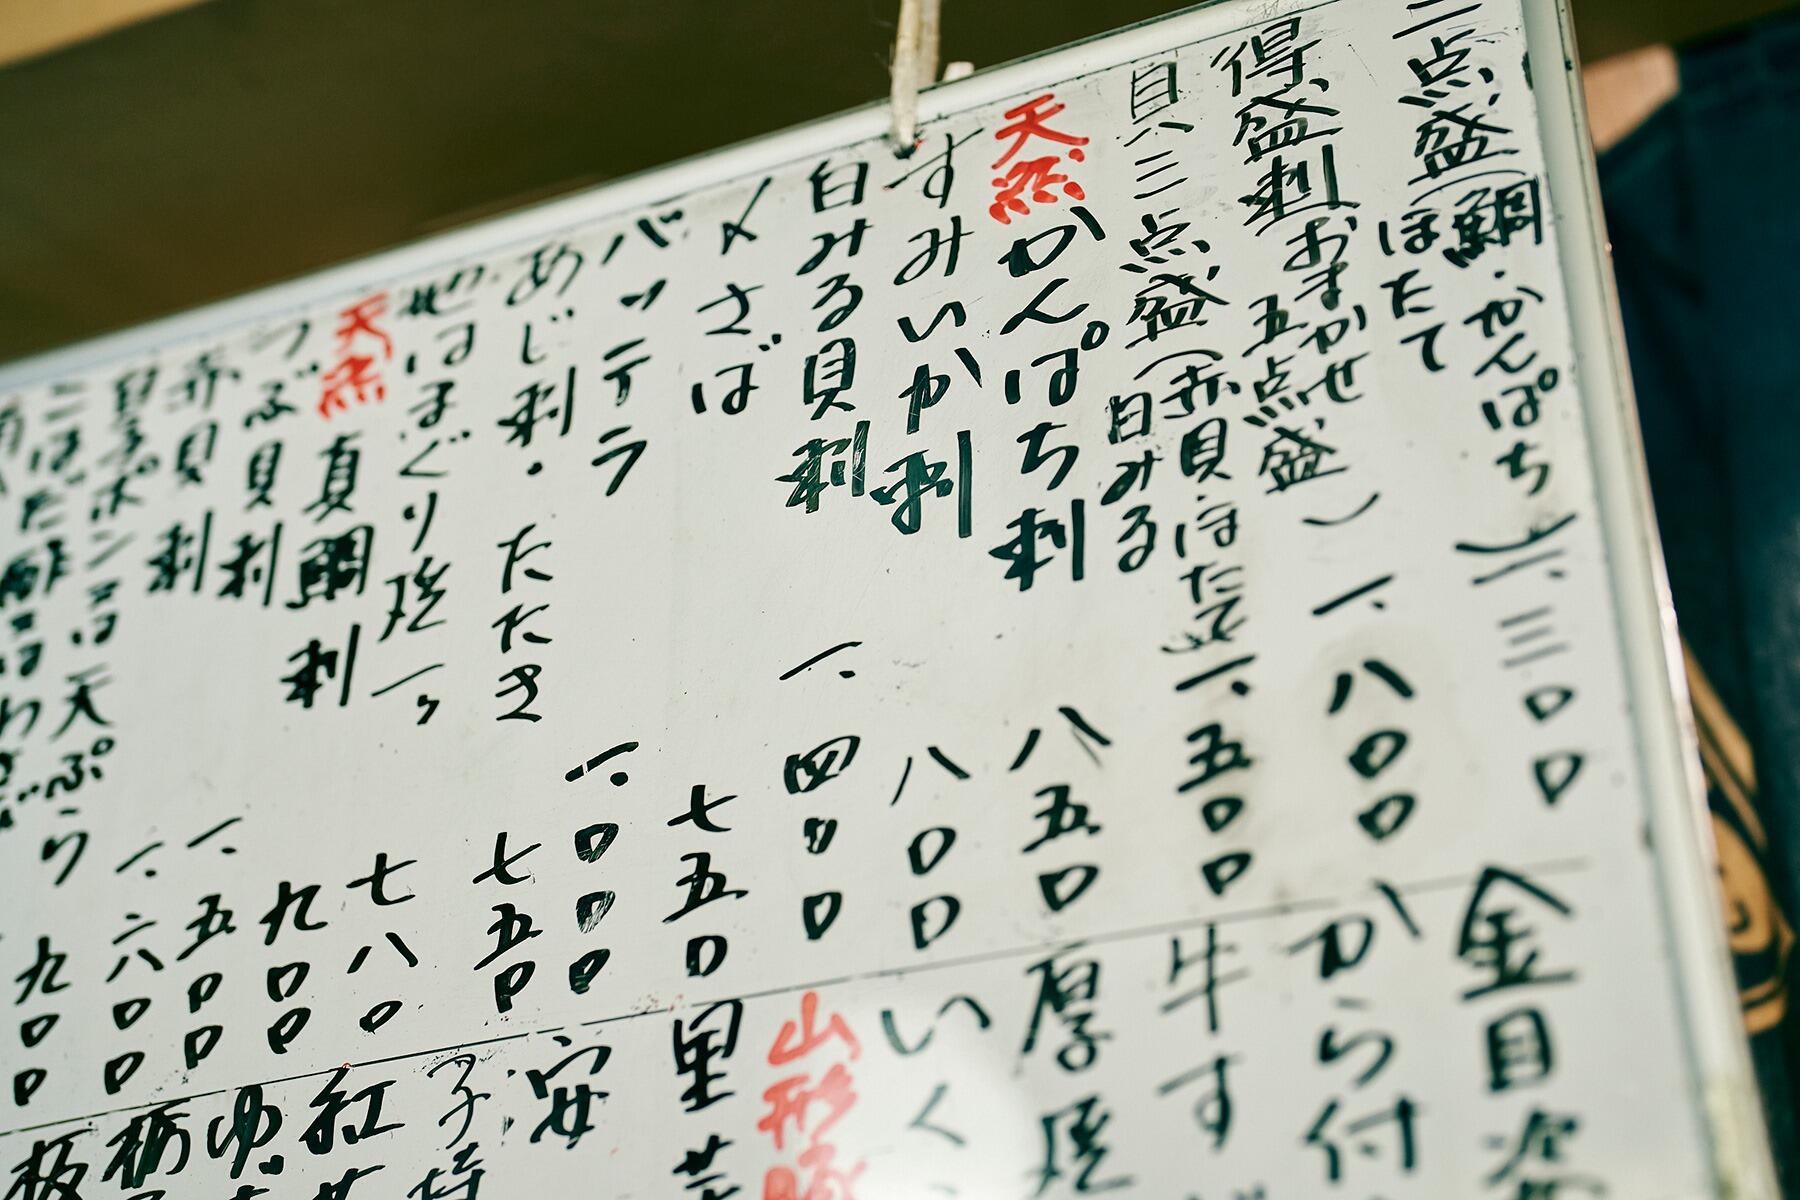 二点盛(鯛・かんぱち ほたて)一、三〇〇
得盛刺(おまかせ五点盛)一、八〇〇
貝三点盛(赤貝・ほたて 白みる)一、五〇〇
天然かんぱち刺 八五〇
すみいか刺 八〇〇
白みる貝刺 一、四〇〇
〆さば 七五〇
バッテラ 一、〇〇〇
あじ刺・たたき 七五〇
地はまぐり焼一ヶ 七八〇
天然真鯛刺 九〇〇
つぶ貝刺 一、五〇〇
赤貝刺 一、六〇〇
白子ポン又は天ぷら 九〇〇
こはだ酢又はわさび
金目
から付
牛す
厚焼
いく
山形豚
里芋
安
子持
紅
ゆ
栃
板